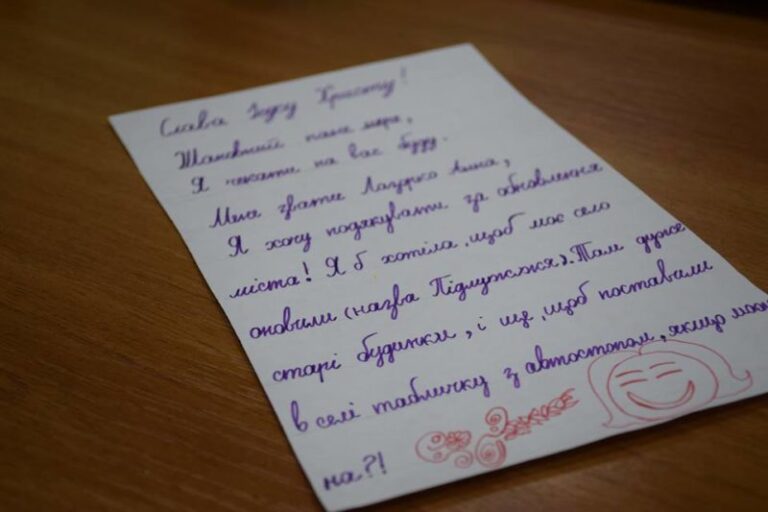 Слава Ісусу Христу!
Шановний пане мере,
Я чекати на вас буду.
Мене звати Лазурко Анна,
Я хочу подякувати за обновлення
міста! Я б хотіла, щоб моє село
оновили (назва Підлужжя). Там дуже
старі будинки, і ще, щоб поставили
в селі табличку з автостопом, якщо мож
на?!